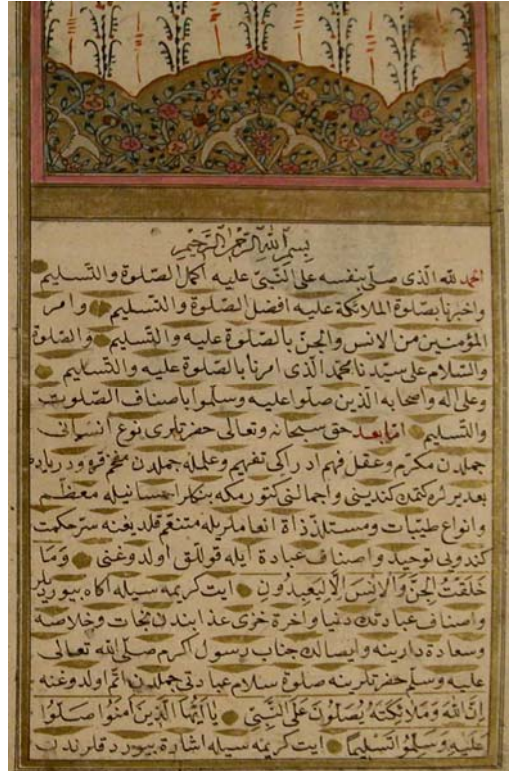 بسم الله الرحمن الرحيم
الحمد لله الذى صلى بنفسه على النبى عليه اكمل الصلوة والتسليم
واخبرنا بصلوة الملائكة عليه افضل الصلوة والتسليم وامر
المؤمنين من الانس والجن بالصلوة عليه والتسليم والصلوة
والسلام على سيدنا محمد الذى امرنا بالصلوة عليه والتسليم
وعلى اله واصحابه الذين صلوا عليه وسلموا باصناف الصلوت
والتسليم اما بعد حق سبحانه وتعالى حضرتلرى نوع انسانى
جمله‌دن مكرم وعقل فهم ادراكى تفهيم وعلمله جمله‌دن
كندينى واجمالنى معظم
وانواع طيبات ومستلذذاة انعاملريله متنعم قلديغنه سر حكمت
كندويى توحيد واصناف عبادة ايله قوللق اولدوغنى وَمَا
خَلَقْتُ الْجِنَّ وَالْاِنْسَ اِلَّا لِيَعْبُدُونِ ايت كريمه سيله اكاه بيوريلر
واصناف عبادتك دنيا واخرة خزى عذابندن نجات وخلاصه
وسعادة دارينه وايصالك جناب رسول اكرم صلى الله تعالى
عليه وسلم حضرتلرينه صلوة سلام عبادتى جمله‌دن اتم اولدوغنه
اِنَّ اللهَ وَمَلَائِكَتَهُ يُصَلُّونَ عَلَى النَّبِيِّ يَا اَيُّهَا الَّذِينَ اٰمَنُوا صَلُّوا
عَلَيْهِ وَسَلِّمُوا تَسْلِيمًا ايت كريمه سيله اشارة بيورد قلرندن